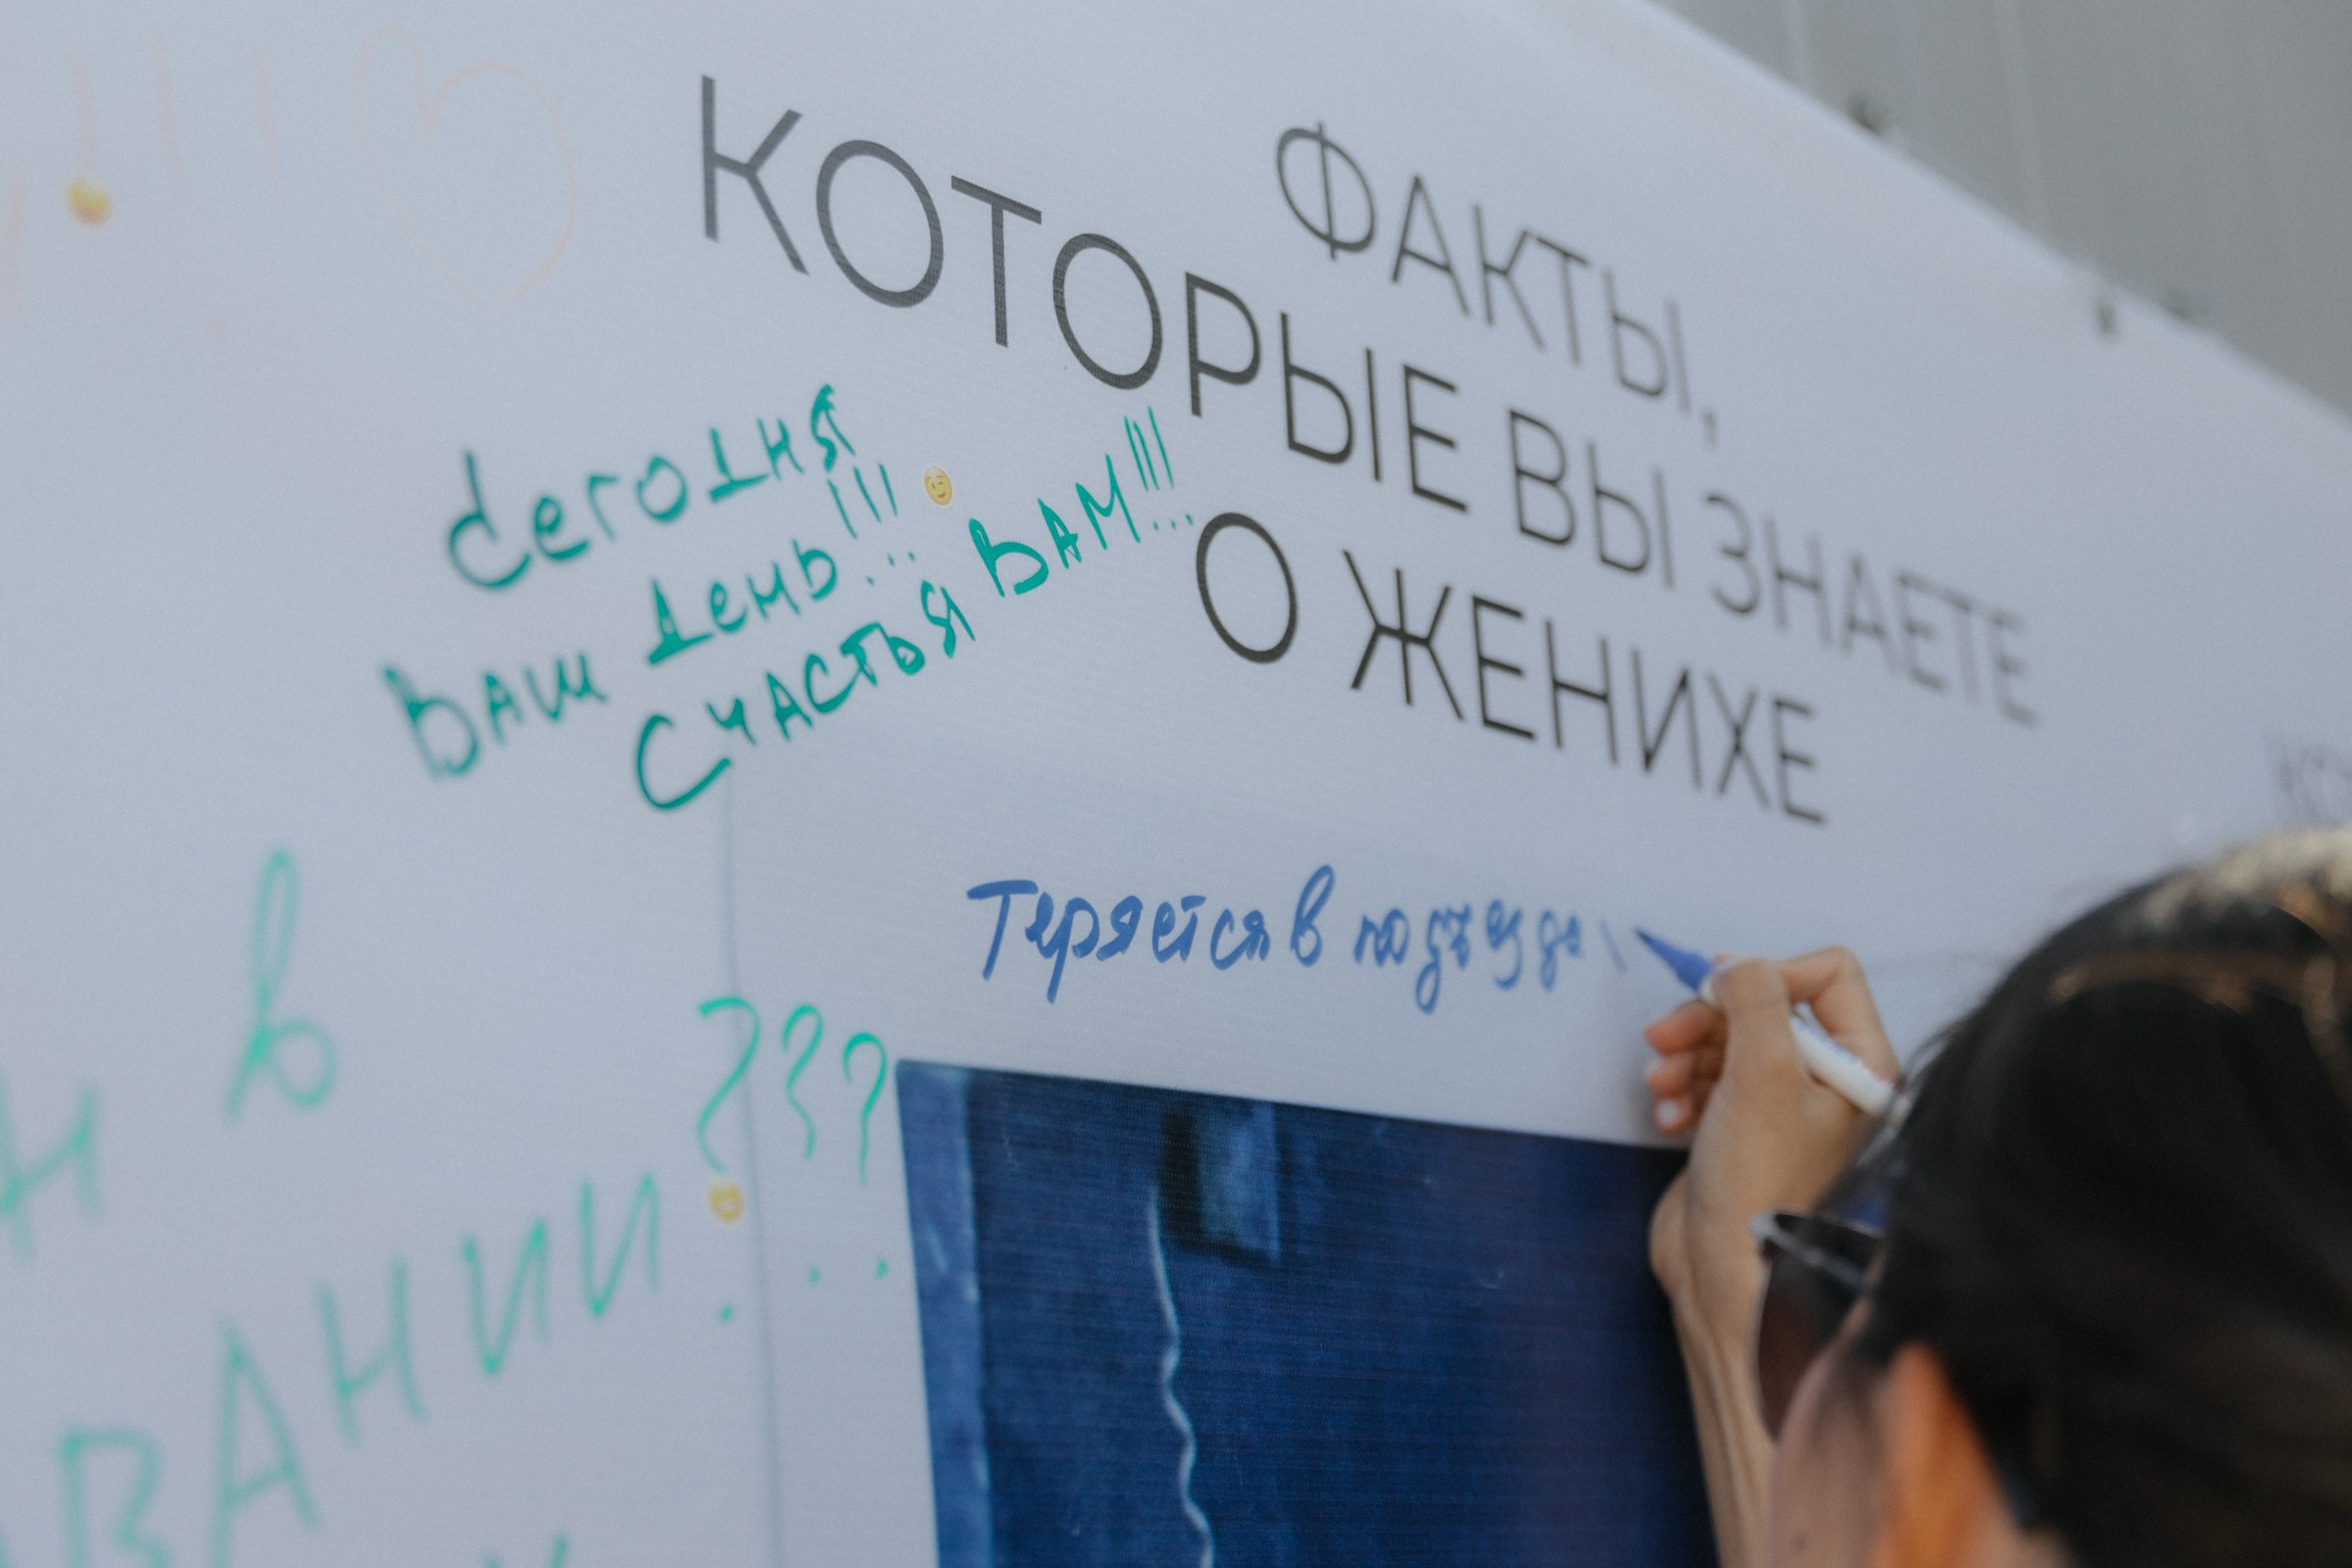 ФАКТЫ,
КОТОРЫЕ ВЫ ЗНАЕТЕ
О ЖЕНИХЕ
Сегодня
ВАШ День!!!
СЧАСТЬЯ ВАМ!!!
Теряется в подъезде
???